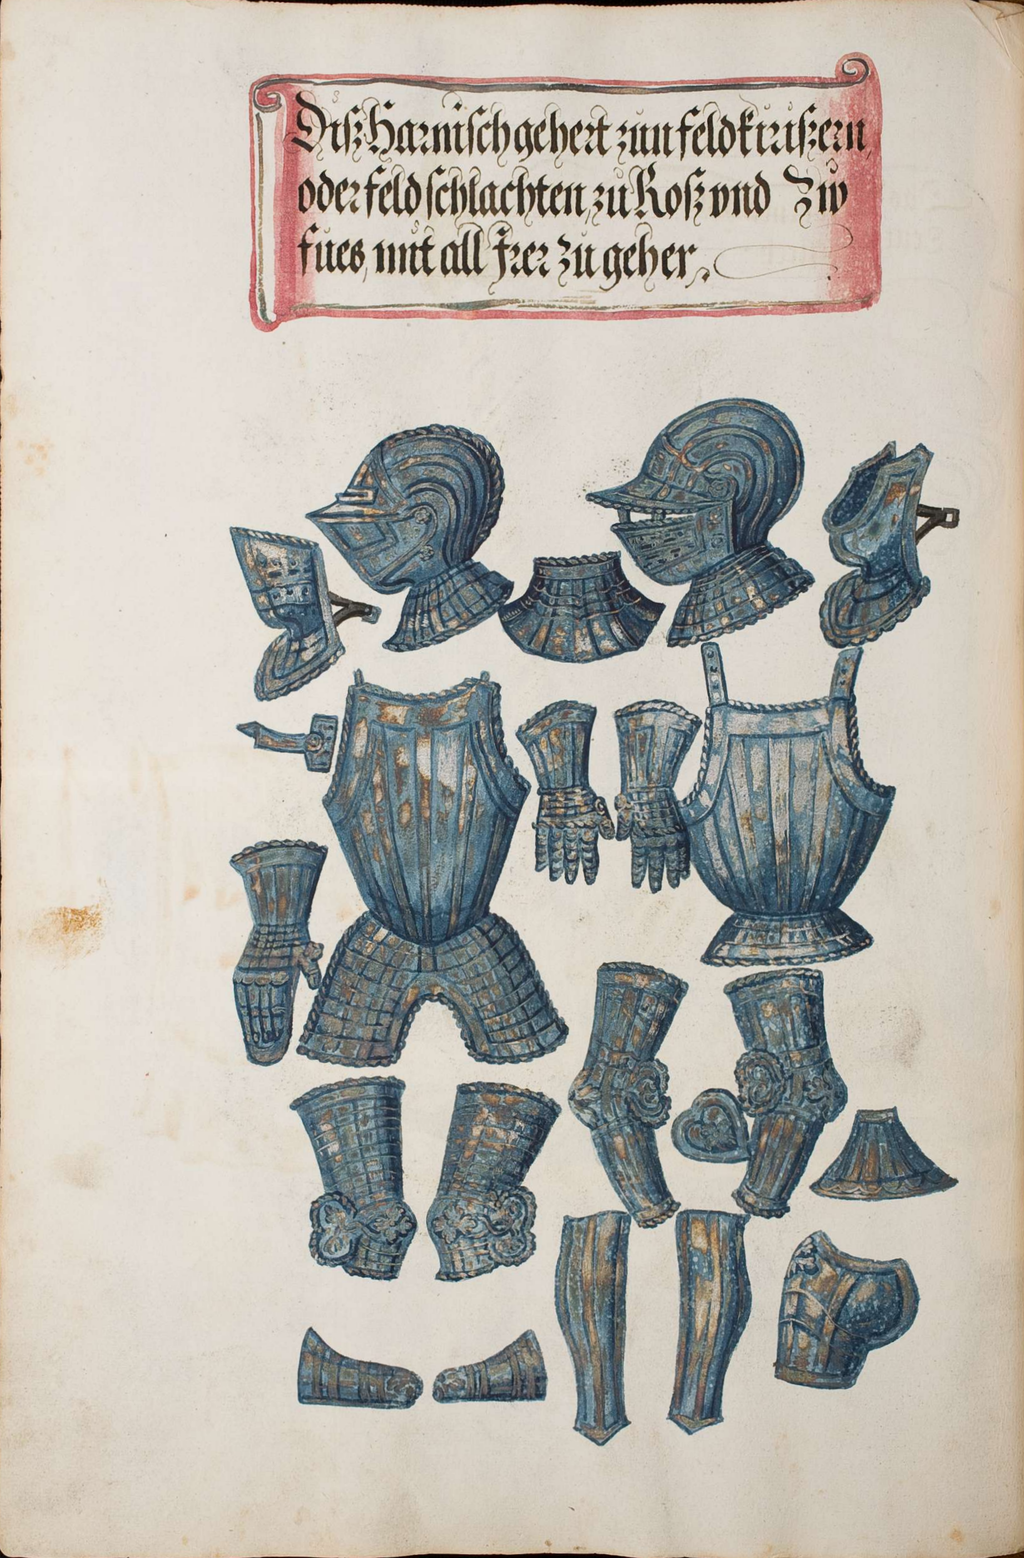 Diſz Harniſch gehert zun feldkiriſzern,
oder feld ſchlachten, zu Roſz vnd Zů
fües, mit all Irer Zu geher.